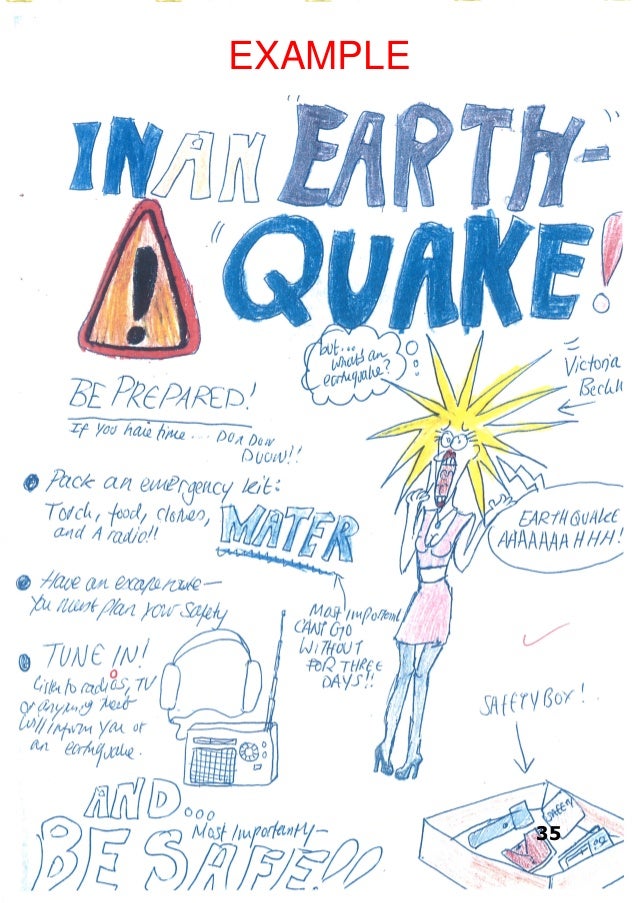 EXAMPLE
IN AN "EARTH-"
"QUAKE!
but...
whats an
earthquake?
Victoria
Beckh
BE PREPARED!
If you have time... DUN DUN
DUUN!!
Pack an emergency kit:
Torch, food, clothes,
and A radio!!
WATER
EARTHQUAKE
AAAAAAAHHH!
Have an escape route —
you must plan your safety
Most important
CAN'T GO
WITHOUT
FOR THREE
DAYS!!
TUNE IN!
Listen to radios, TV
or anything that
will inform you of
an earthquake.
SAFETY BOX!
SAFETY
35
AND...
Most Importantly—
BE SAFE!!